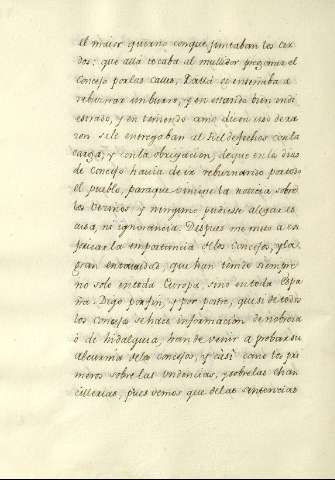 el maior guarro, conque juntaban los cer
dos: que allá tocaba al mullidor pregonar el
Concejo por las calles, y allá se enseñaba a
rebuznar un burro, y en estando bien indi
estrado, y en teniendo año, dien uso de ra
zon se le entregaban al Fiel de fechos con la
carga, y con la obligacion, de que en los dias
de Concejo havia de ir rebuznando por todo
el pueblo, para que viniese la noticia sobre
los vecinos y ninguno pudiese alegar es
cusa, ni ignorancia. Despues se metio a es
paciar la importancia de los concejos, y la
gran antiguedad, que han tenido siempre
no solo en toda Europa, sino en toda Espa
ña. Digo por fin, y por postre, que si de todos
los concejos se hace informacion de nobleza
ó de hidalguia, han de venir a probar su
alcurnia de los concejos, y casi como los pri
meros sobre las audencias, y sobre las chan
cillerias, pues vemos que de las sentencias